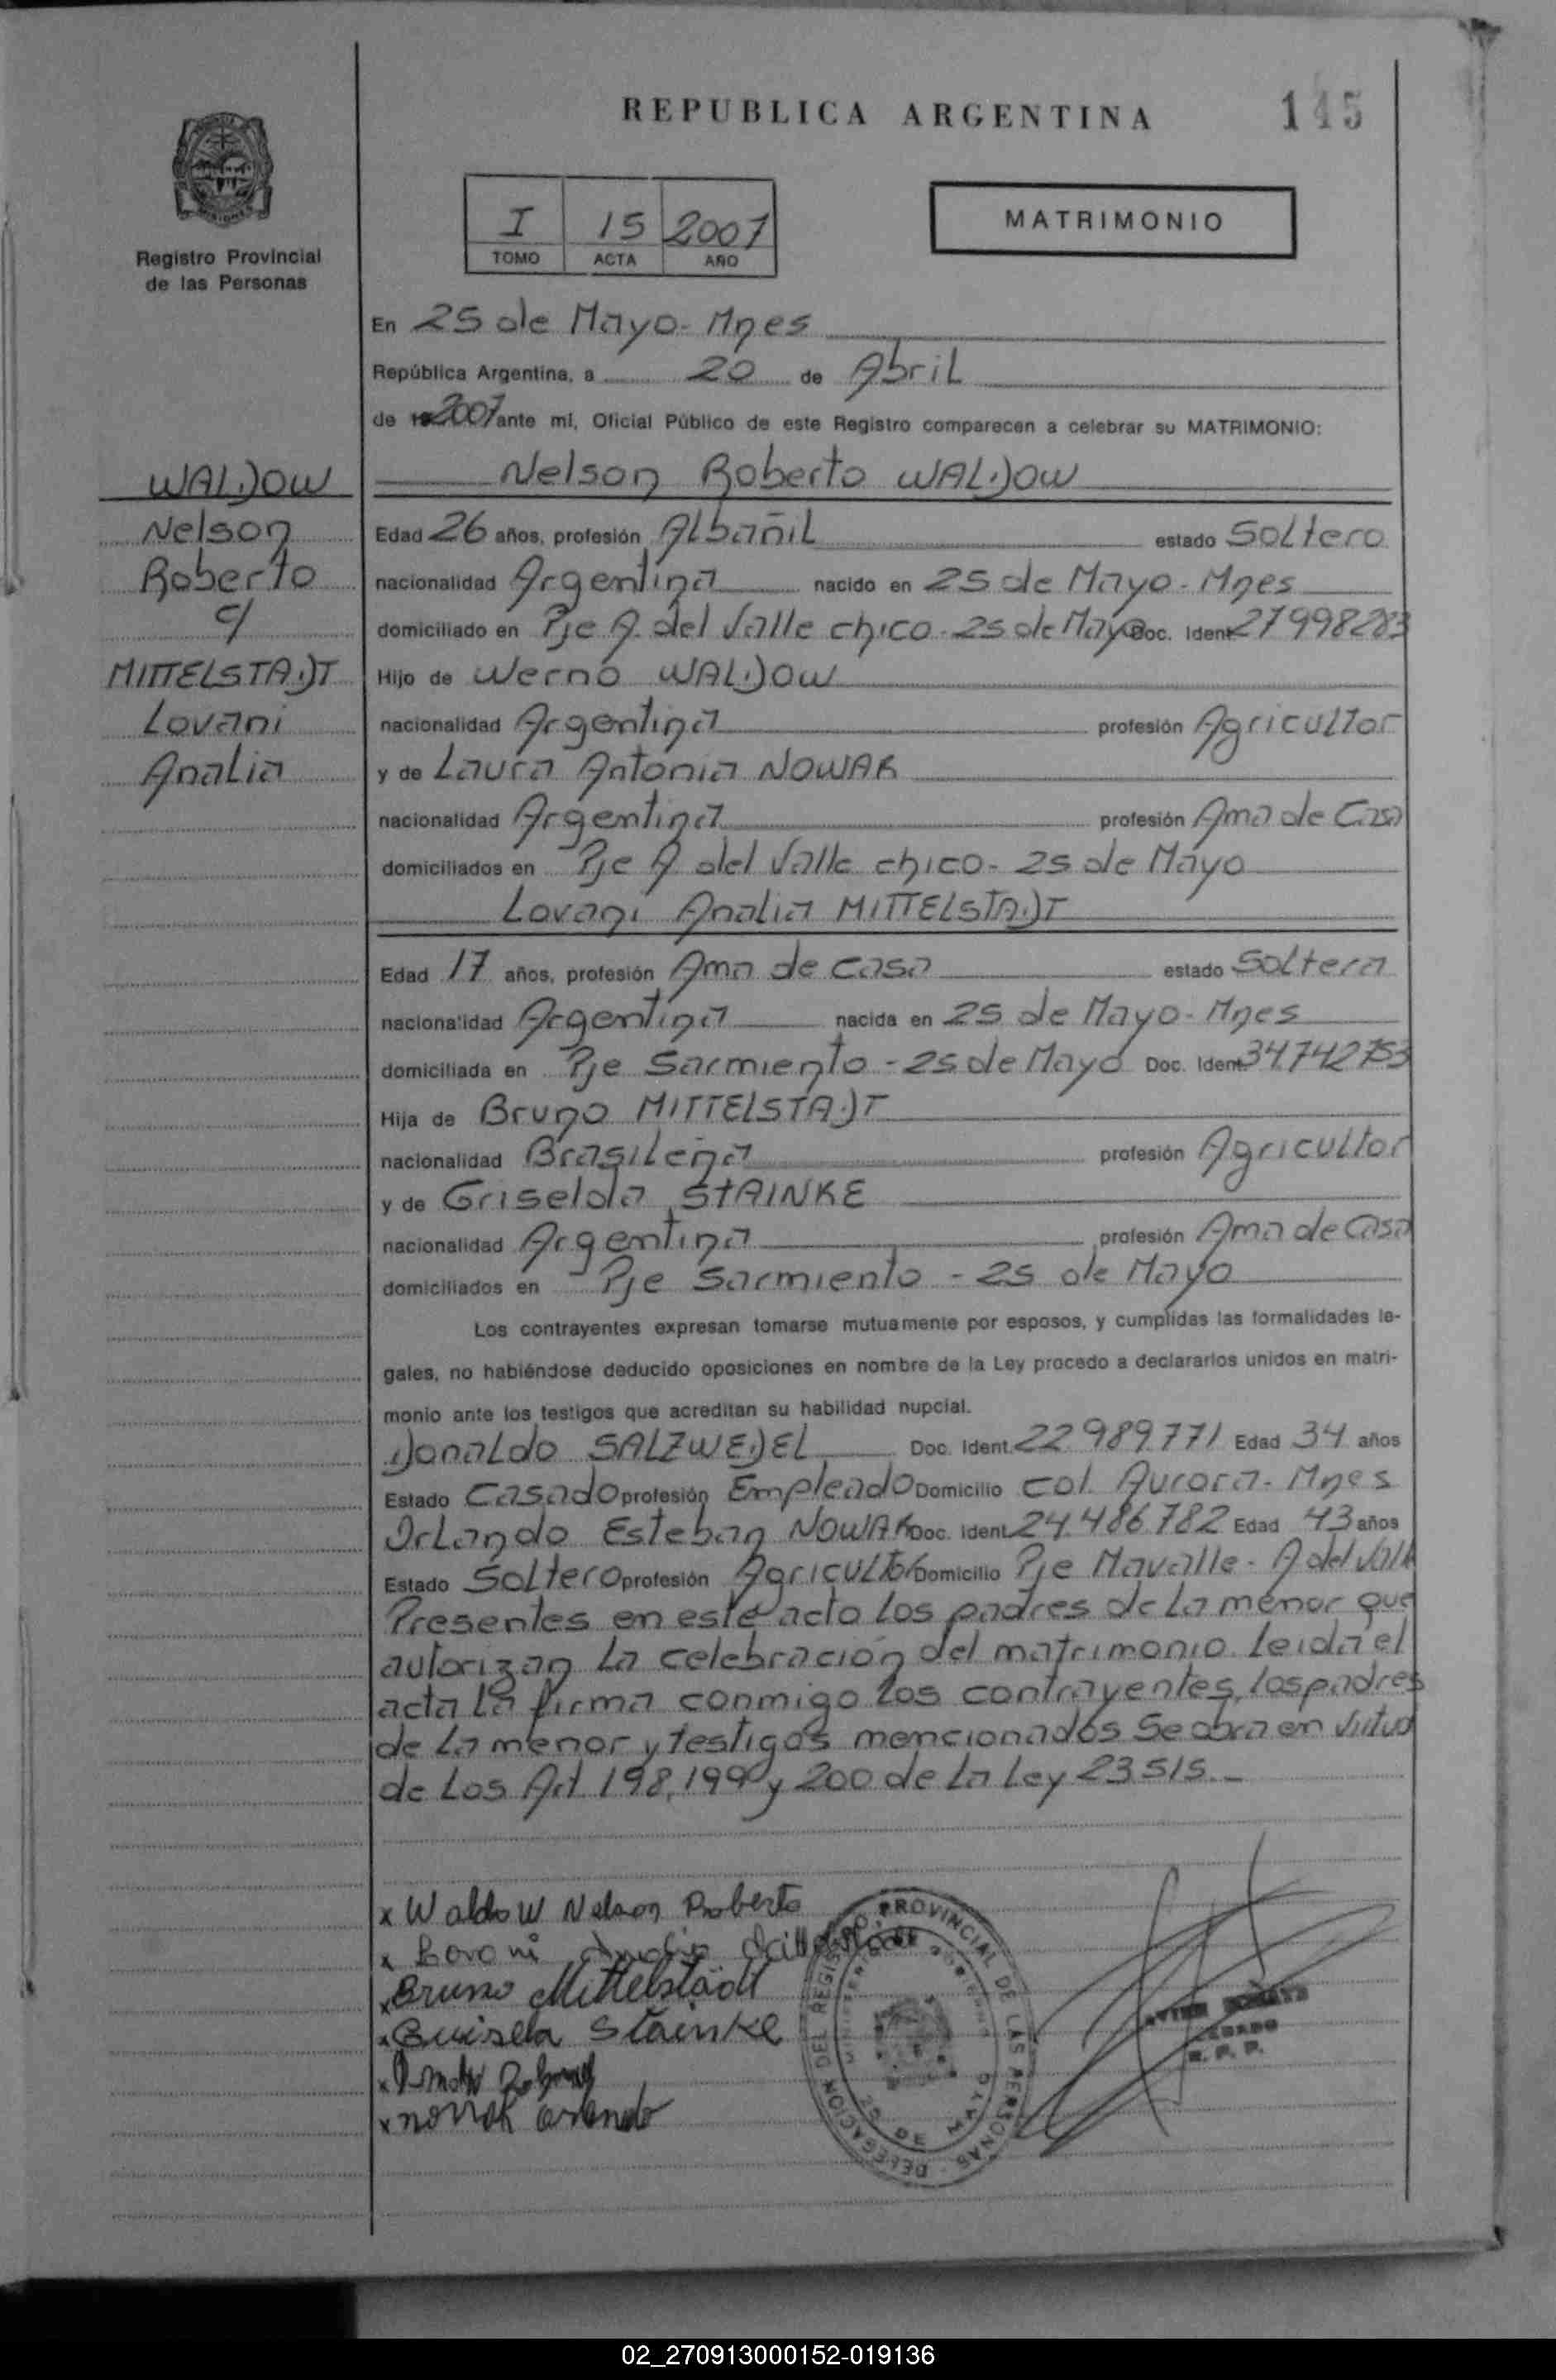 REPUBLICA ARGENTINA
145
I 15 2007
TOMO ACTA AÑO
MATRIMONIO
Registro Provincial
de las Personas
En 25 de Mayo - Mnes
República Argentina, a 20 de Abril
de 19 2007 ante mí, Oficial Público de este Registro comparecen a celebrar su MATRIMONIO:
WALDOW
Nelson
Roberto
c/
MITTELSTADT
Lovani
Analia
Nelson Roberto WALDOW
Edad 26 años, profesión Albañil estado Soltero
nacionalidad Argentina nacido en 25 de Mayo - Mnes
domiciliado en Pje A. del Valle chico - 25 de Mayo Doc. Ident 27998283
Hijo de Werno WALDOW
nacionalidad Argentina profesión Agricultor
y de Laura Antonia NOWAK
nacionalidad Argentina profesión Ama de Casa
domiciliados en Pje A del Valle chico - 25 de Mayo
Lovani Analia MITTELSTADT
Edad 17 años, profesión Ama de casa estado Soltera
nacionalidad Argentina nacida en 25 de Mayo - Mnes
domiciliada en Pje Sarmiento - 25 de Mayo Doc. Ident 34.742753
Hija de Bruno MITTELSTADT
nacionalidad Brasileña profesión Agricultor
y de Griselda STAINKE
nacionalidad Argentina profesión Ama de Casa
domiciliados en Pje Sarmiento - 25 de Mayo
Los contrayentes expresan tomarse mutuamente por esposos, y cumplidas las formalidades le-
gales, no habiéndose deducido oposiciones en nombre de la Ley procedo a declararlos unidos en matri-
monio ante los testigos que acreditan su habilidad nupcial.
Donaldo SALZWEDEL Doc. Ident. 22.989.771 Edad 34 años
Estado Casado profesión Empleado Domicilio Col. Aurora - Mnes
Orlando Esteban NOWAK Doc. Ident. 24.486.782 Edad 43 años
Estado Soltero profesión Agricultor Domicilio Pje Mavalle - A del Valle
Presentes en este acto los padres de la menor que
autorizan la celebración del matrimonio. leida el
acta la firma conmigo los contrayentes, los padres
de la menor y testigos mencionados Se obra en virtud
de los Art. 198, 199 y 200 de la ley 23.515.-
x Waldow Nelson Roberto
x Lovani
x Bruno Mittelstädt
x Stainke
x
x nowak orlando
DELEGACION DEL REGISTRO PROVINCIAL DE LAS PERSONAS
25 DE MAYO
02_270913000152-019136